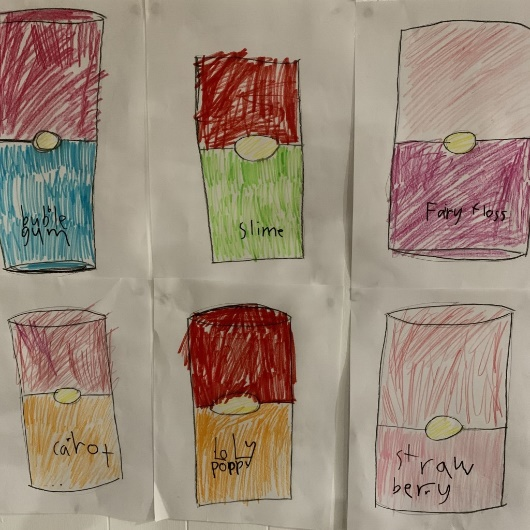 buble
gum
slime
Fairy floss
carot
loly
poppy
straw
berry